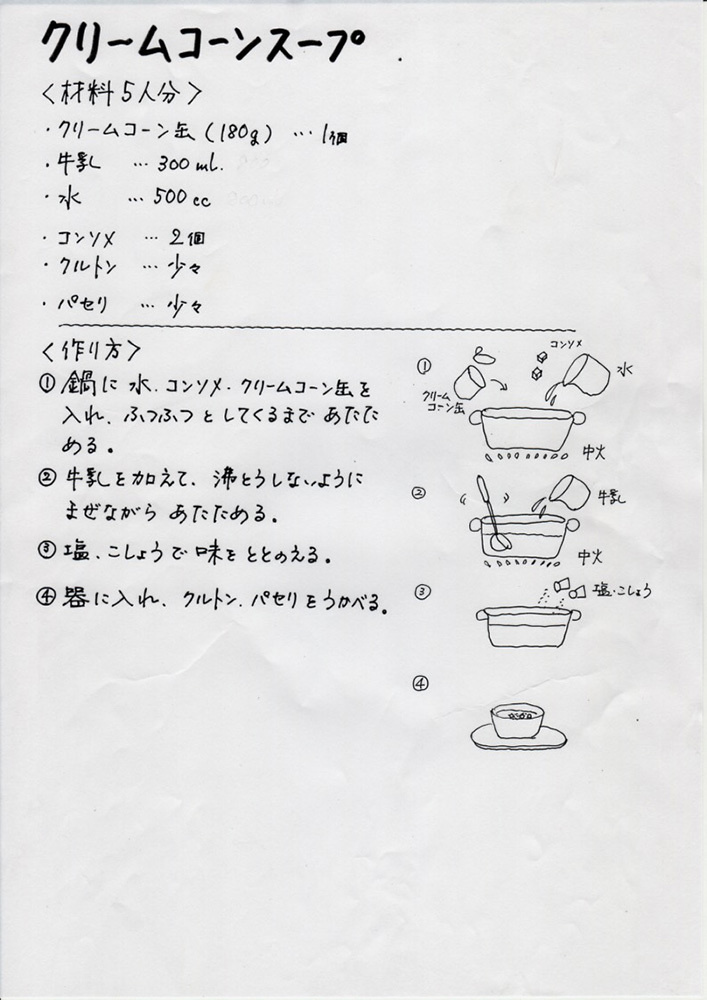 クリームコーンスープ
〈材料5人分〉
・クリームコーン缶(180g) … 1個
・牛乳 … 300ml.
・水 … 500cc
・コンソメ … 2個
・クルトン … 少々
・パセリ … 少々
〈作り方〉
① 鍋に水、コンソメ・クリームコーン缶を
入れ、ふつふつとしてくるまであたた
める。
② 牛乳を加えて、沸とうしないように
まぜながらあたためる。
③ 塩、こしょうで味をととのえる。
④ 器に入れ、クルトン、パセリをうかべる。
①
コンソメ
水
クリーム
コーン缶
中火
②
牛乳
中火
③
塩・こしょう
④